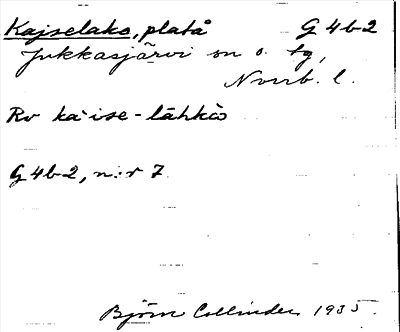 Kajselako, platå G4b2
Jukkasjärvi sn o. tg,
Norrb. l.
Rv ka'ise-lāhkò
G4b2, n:r 7.
Björn Collinder 1935.